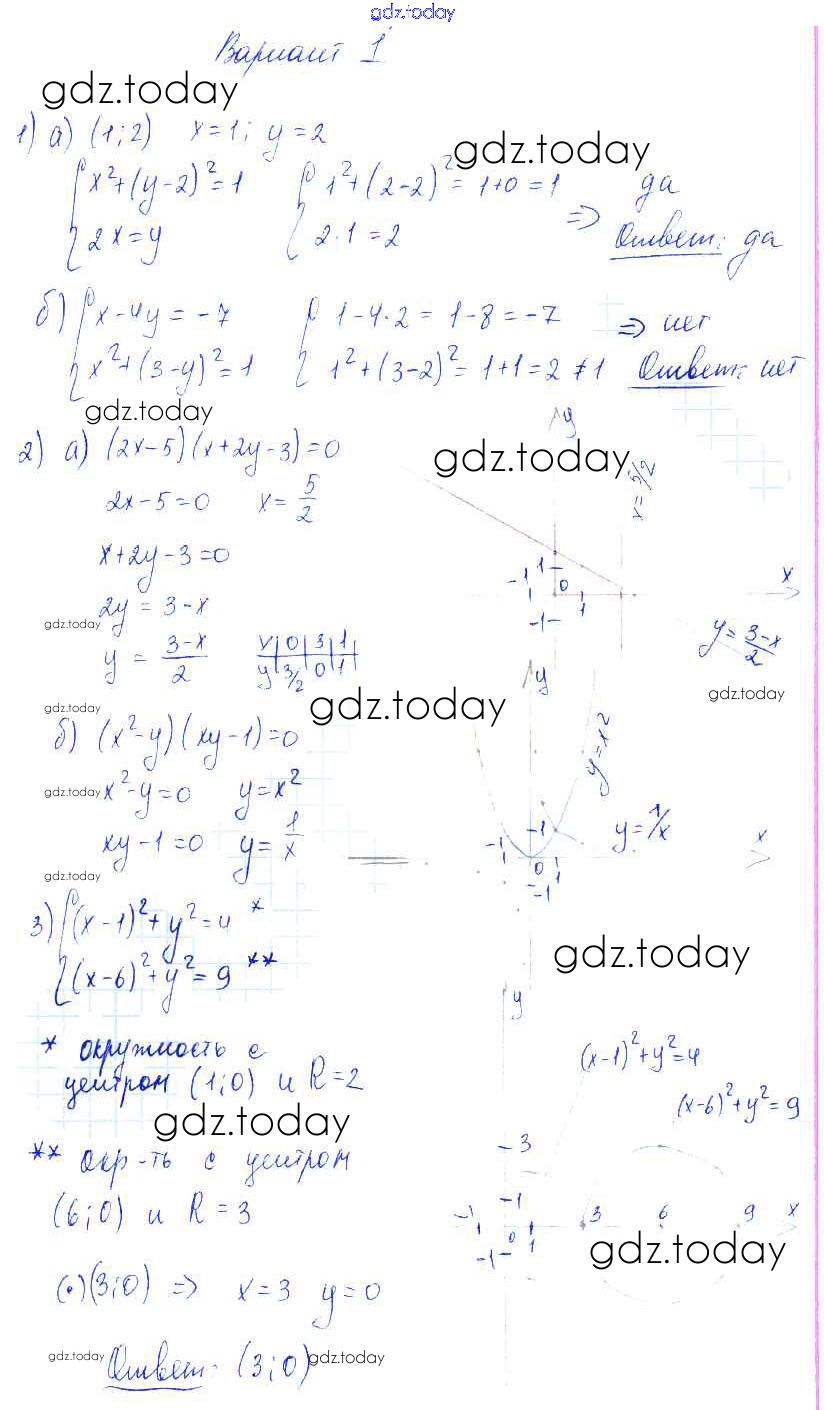 gdz.today
Вариант 1
gdz.today
1) а) (1;2) x=1; y=2
gdz.today
{ x²+(y-2)²=1 { 1²+(2-2)²= 1+0=1 да
2x=y 2·1=2 => Ответ: да
б) { x-4y=-7 { 1-4·2=1-8=-7 => нет
x²+(3-y)²=1 1²+(3-2)²=1+1=2≠1 Ответ: нет
gdz.today
2) а) (2x-5)(x+2y-3)=0
gdz.today
2x-5=0 x=5/2
x+2y-3=0
2y=3-x
gdz.today
y=(3-x)/2
x 0 3 1
y 3/2 0 1
y
x=5/2
-1 1 0 1 x
-1
y=(3-x)/2
gdz.today
gdz.today
gdz.today
б) (x²-y)(xy-1)=0
gdz.today x²-y=0 y=x²
xy-1=0 y=1/x
gdz.today
y
y=x²
1 y=1/x x
-1 0 1
-1
3) { (x-1)²+y²=4 *
(x-6)²+y²=9 **
gdz.today
* окружность с
центром (1;0) и R=2
gdz.today
** окр-ть с центром
(6;0) и R=3
(•)(3;0) => x=3 y=0
gdz.today Ответ: (3;0) gdz.today
y
(x-1)²+y²=4
(x-6)²+y²=9
3
1
-1 0 1 3 6 9 x
-1
gdz.today